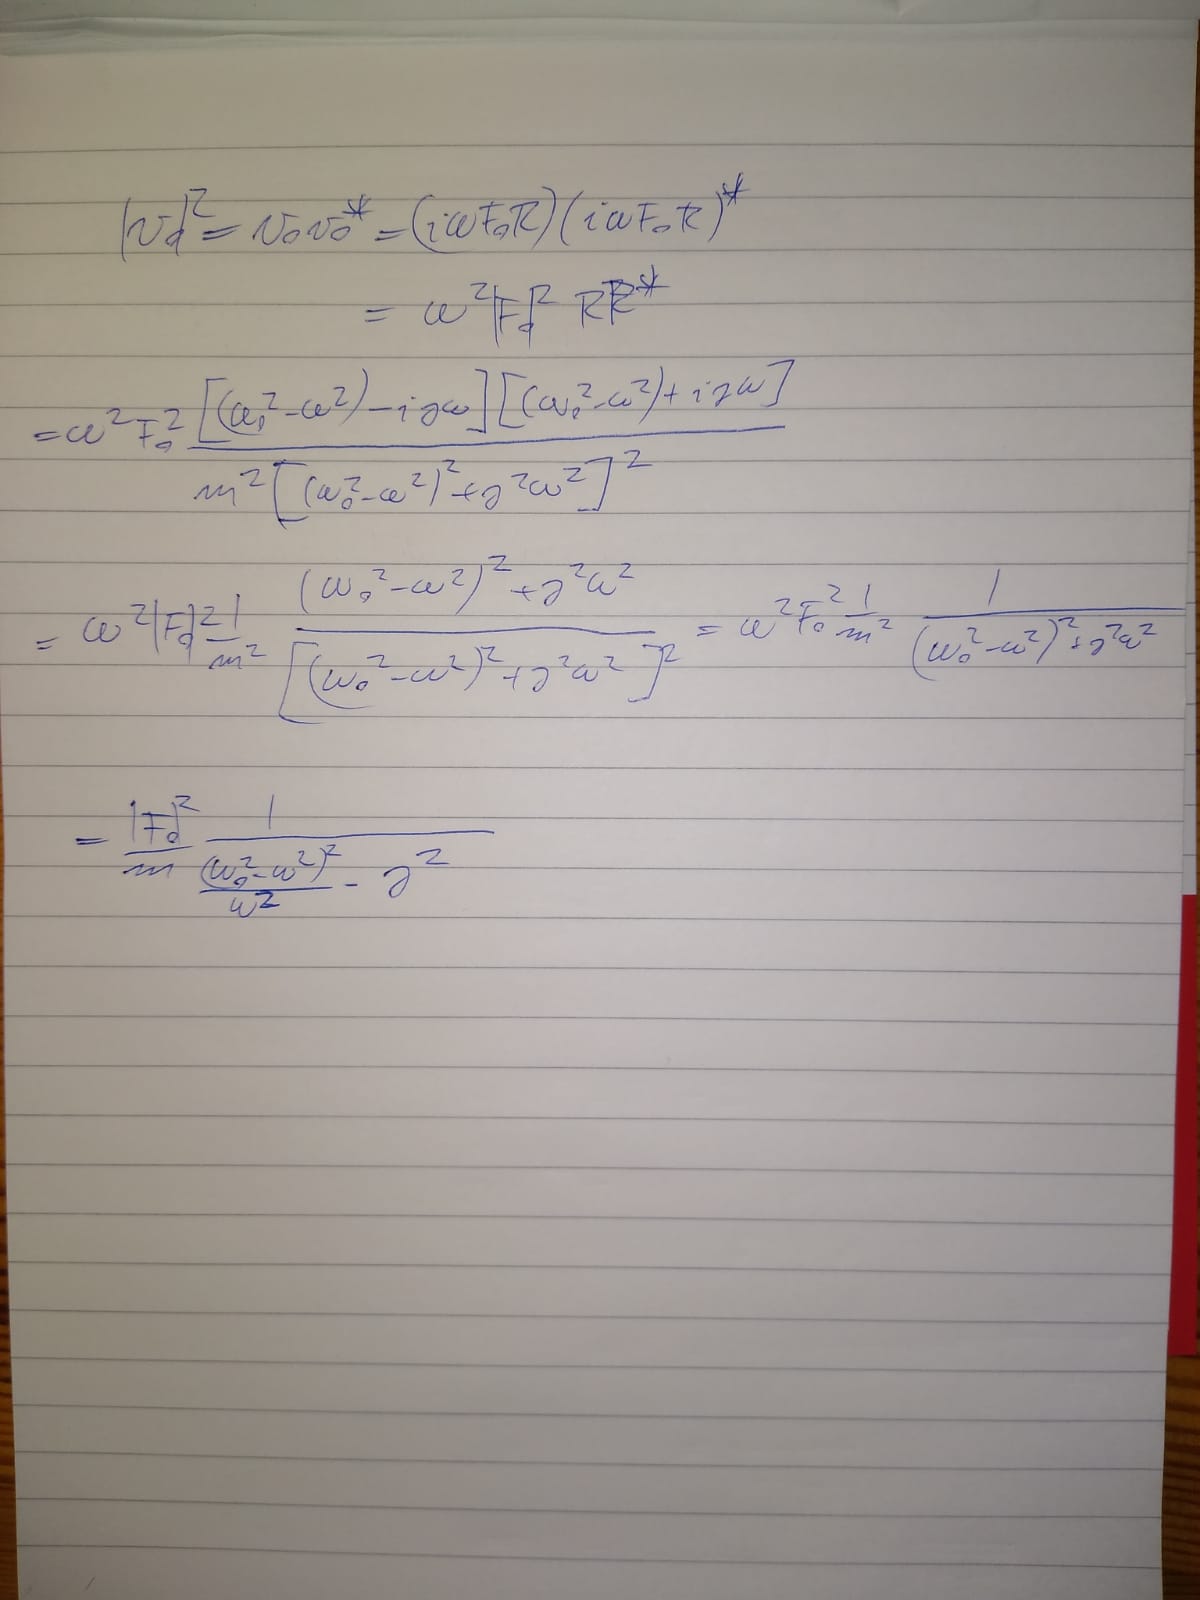 |v₀|² = v₀v₀* = (iωF₀R)(iωF₀R)*
= ω²|F₀|² RR*
= ω²F₀² [(ω₀²-ω²)-iγω][(ω₀²-ω²)+iγω] / m²[(ω₀²-ω²)²+γ²ω²]²
= ω²|F₀|² 1/m² (ω₀²-ω²)²+γ²ω² / [(ω₀²-ω²)²+γ²ω²]² = ω²F₀² 1/m² 1/((ω₀²-ω²)²+γ²ω²)
= |F₀|²/m 1/((ω₀²-ω²)²/ω² - γ²)